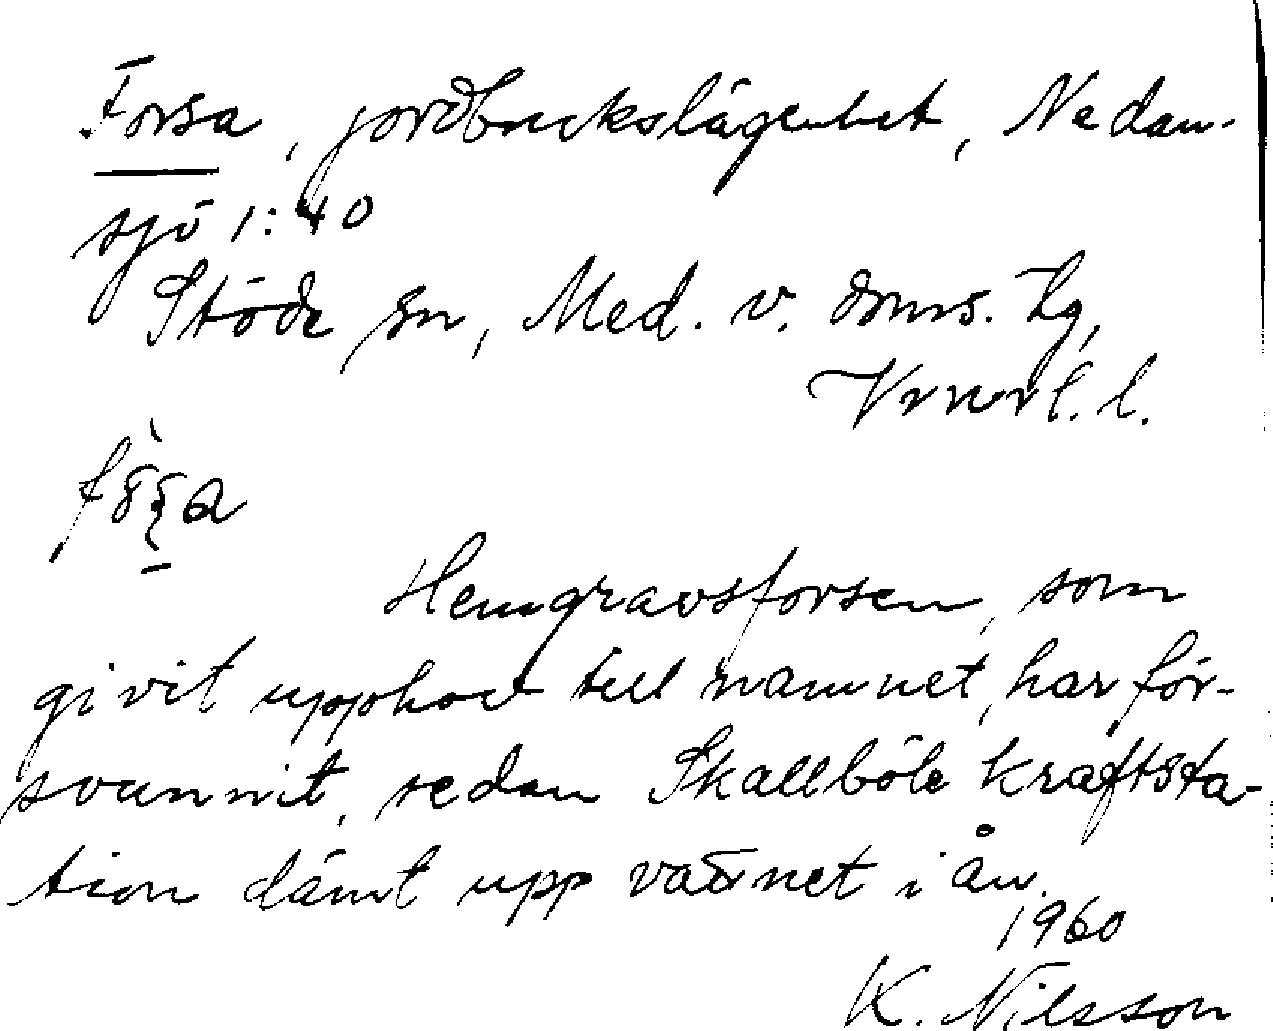 Forsa, jordbrukslägenhet, Nedan-
sjö 1:40
Stöde sn, Med. v. doms. tg,
Vnorl. l.
Hemgravsforsen, som
givit upphov till namnet, har för-
svunnit, sedan Skallböle kraftsta-
tion dämt upp vattnet i ån.
1960
K. Nilsson